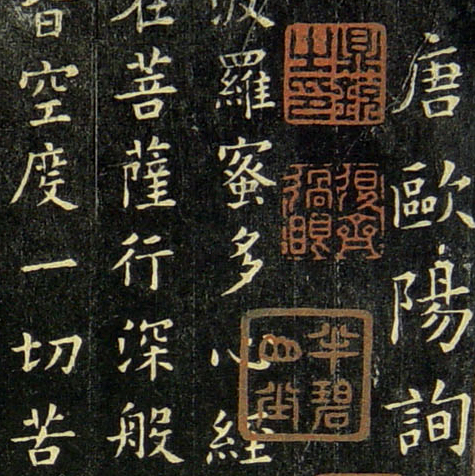 唐歐陽詢
復齋過眼
波羅蜜多心經
在菩薩行深般
皆空度一切苦